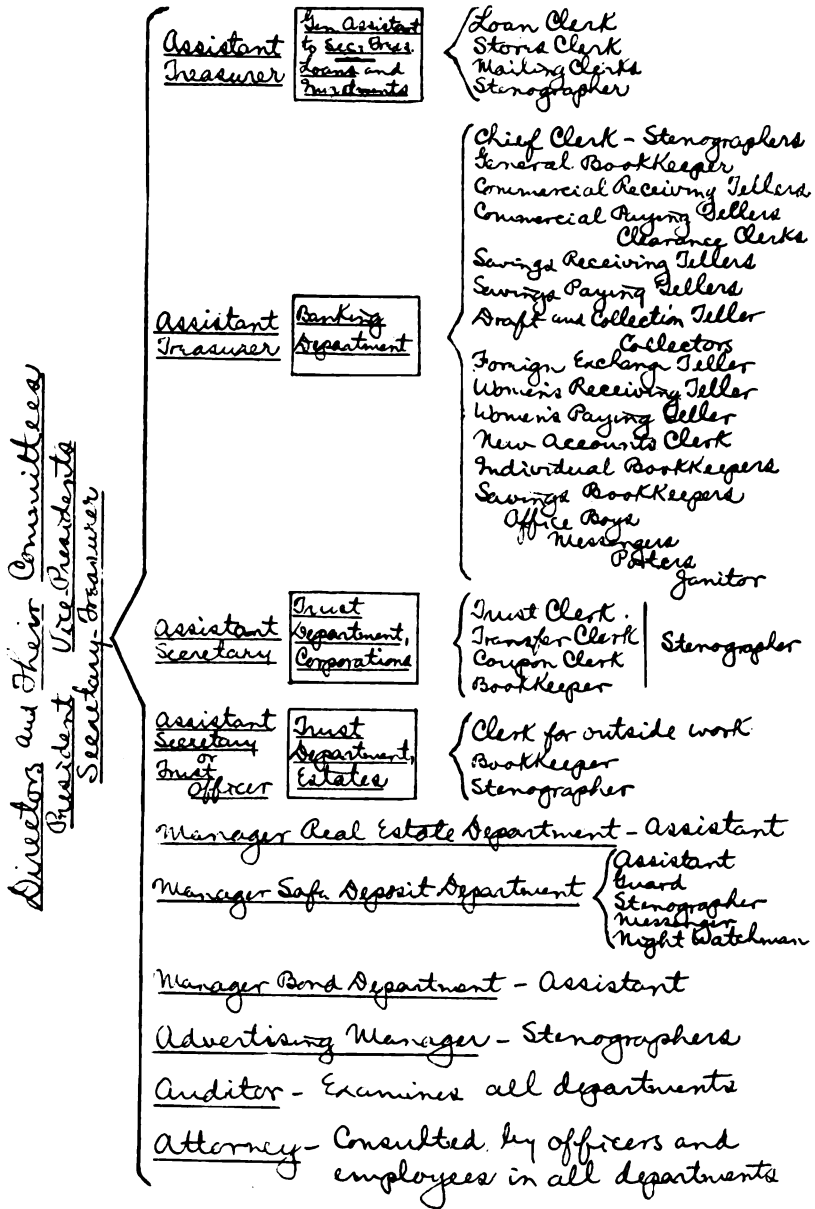 Directors and Their Committees
President Vice-Presidents
Secretary-Treasurer
Assistant
Treasurer
Gen Assistant
to Sec. Treas.
Loans and
Investments
Loan Clerk
Stores Clerk
Mailing Clerks
Stenographer
Assistant
Treasurer
Banking
Department
Chief Clerk - Stenographers
General BookKeeper
Commercial Receiving Tellers
Commercial Paying Tellers
Clearance Clerks
Savings Receiving Tellers
Savings Paying Tellers
Draft and Collection Teller
Collectors
Foreign Exchange Teller
Women's Receiving Teller
Women's Paying Teller
New Accounts Clerk
Individual BookKeepers
Savings BookKeepers
Office Boys
Messengers
Porters
Janitor
Assistant
Secretary
Trust
Department,
Corporations
Trust Clerk.
Transfer Clerk
Coupon Clerk
BookKeeper
Stenographer
Assistant
Secretary
or
Trust
Officer
Trust
Department,
Estates
Clerk for outside work
BookKeeper
Stenographer
Manager Real Estate Department - Assistant
Manager Safe Deposit Department
Assistant
Guard
Stenographer
Messenger
Night Watchman
Manager Bond Department - Assistant
Advertising Manager - Stenographers
Auditor - Examines all departments
Attorney - Consulted by officers and
employees in all departments